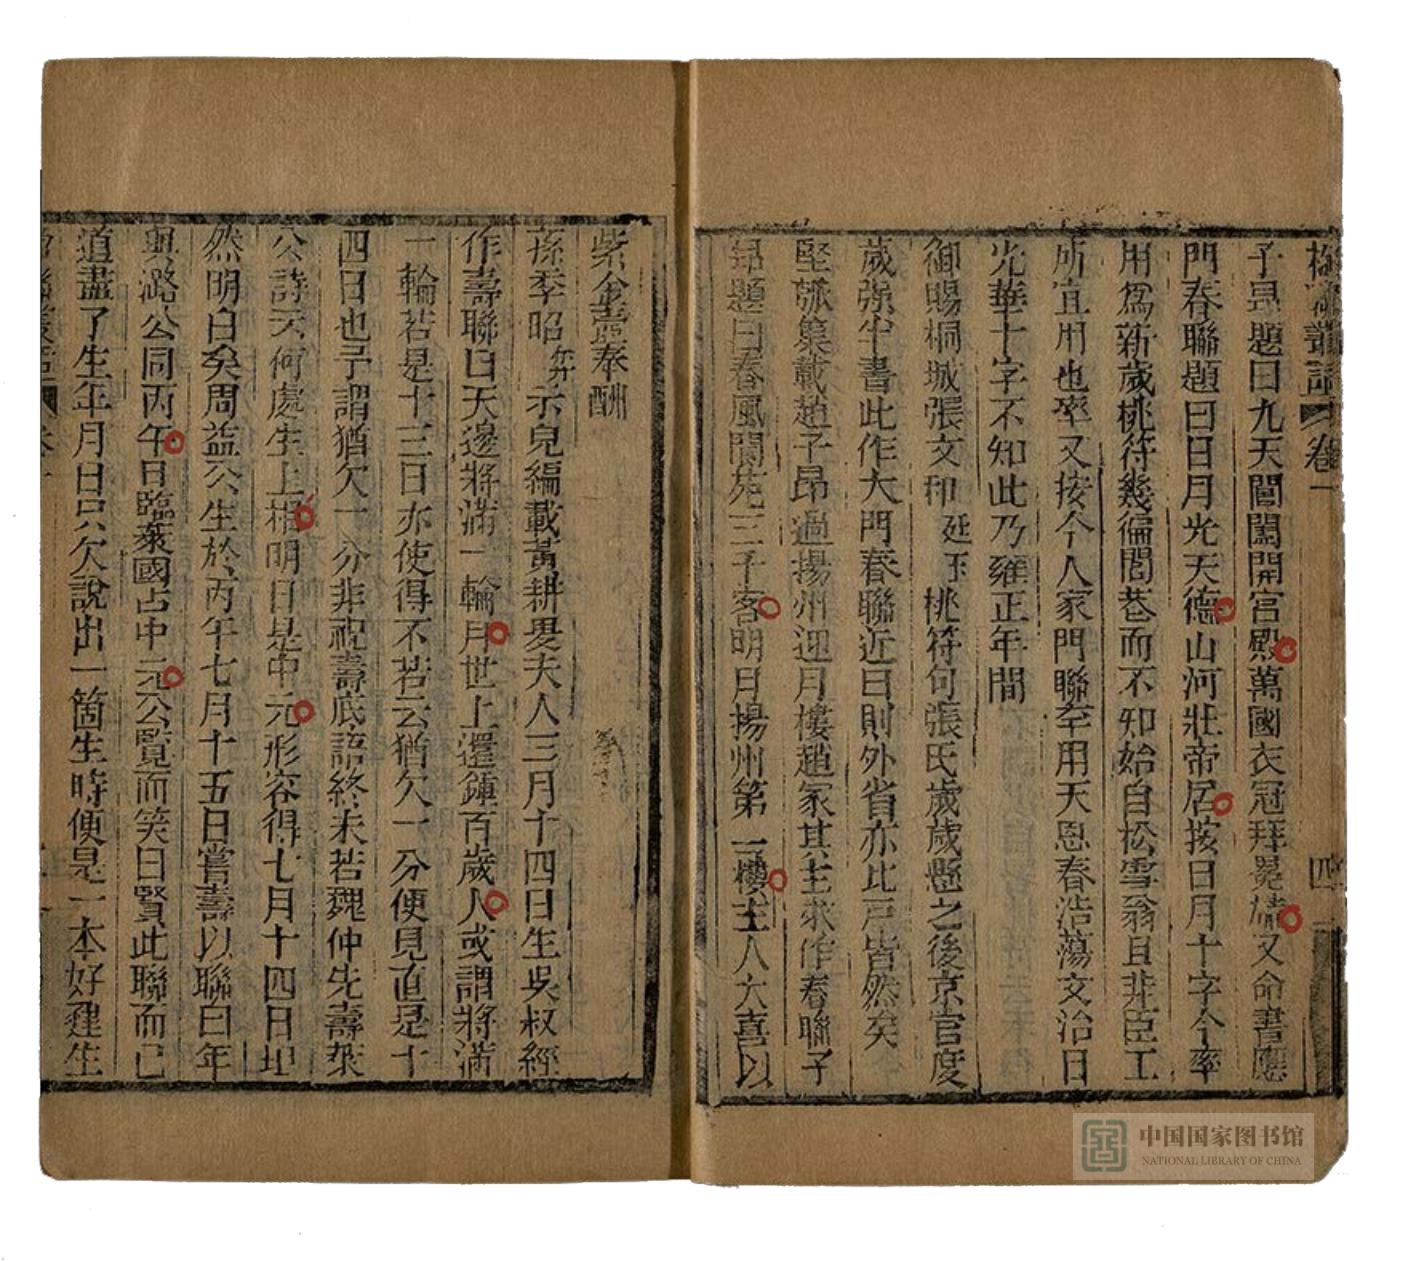 楹聯叢話 卷一 四
子昂題曰九天閶闔開宮殿萬國衣冠拜冕旒又命書應
門春聯題曰日月光天德山河壯帝居按日月十字今率
用爲新歲桃符幾徧閭巷而不知始自松雪翁且非臣工
所宜用也率又按今人家門聯率用天恩春浩蕩文治日
光華十字不知此乃雍正年間
御賜桐城張文和廷玉桃符句張氏歲歲懸之後京官度
歲强半書此作大門春聯近日則外省亦比戸皆然矣
堅瓠集載趙子昂過揚州迎月樓趙家其主求作春聯子
昂題曰春風閬苑三千客明月揚州第一樓主人大喜以
紫金壺奉酬
孫季昭奕示兒編載黃耕叟夫人三月十四日生吳叔經
作壽聯曰天邊將滿一輪月世上還鍾百歲人或謂將滿
一輪若是十三日亦使得不若云猶欠一分便見直是十
四日也予謂猶欠一分非祝壽底語終未若魏仲先壽萊
公詩天何處生上相明日是中元形容得七月十四日坦
然明白矣周益公生於丙午七月十五日嘗壽以聯曰年
與潞公同丙午日臨萊國占中元公覽而笑曰賢此聯而已
道盡了生年月日只欠說出一箇生時便是一本好建生
中国国家图书馆
NATIONAL LIBRARY OF CHINA